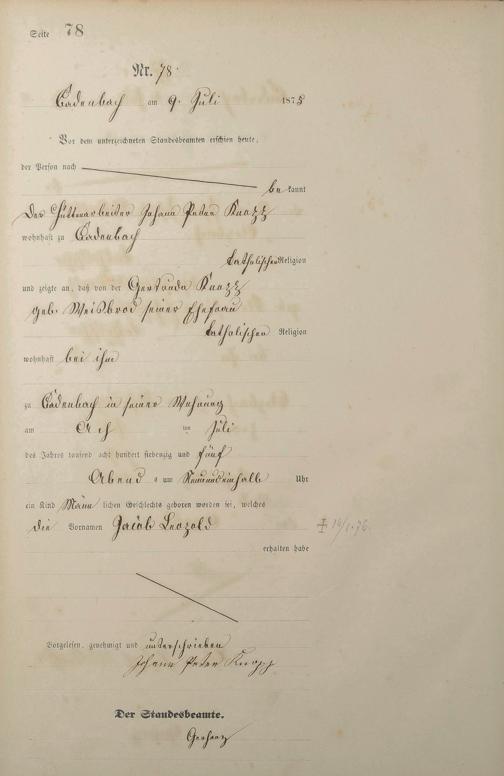 Seite 78
Nr. 78.
Cadenbach am 9. Juli 1875
Vor dem unterzeichneten Standesbeamten erschien heute,
der Person nach
be kannt
der Hüttenarbeiter Johann Peter Knopp
wohnhaft zu Cadenbach
katholischen Religion
und zeigte an, daß von der Gertruda Knopp
geb. Weisbrod seiner Ehefrau
katholischen Religion
wohnhaft bei ihm
zu Cadenbach in seiner Wohnung
am im Juli
des Jahres tausend acht hundert siebenzig und fünf
Abend s um Neunundeinhalb Uhr
ein Kind Männ lichen Geschlechts geboren worden sei, welches
die Vornamen Jacob Leopold
erhalten habe
Vorgelesen, genehmigt und unterschrieben
Johann Peter Knopp
Der Standesbeamte.